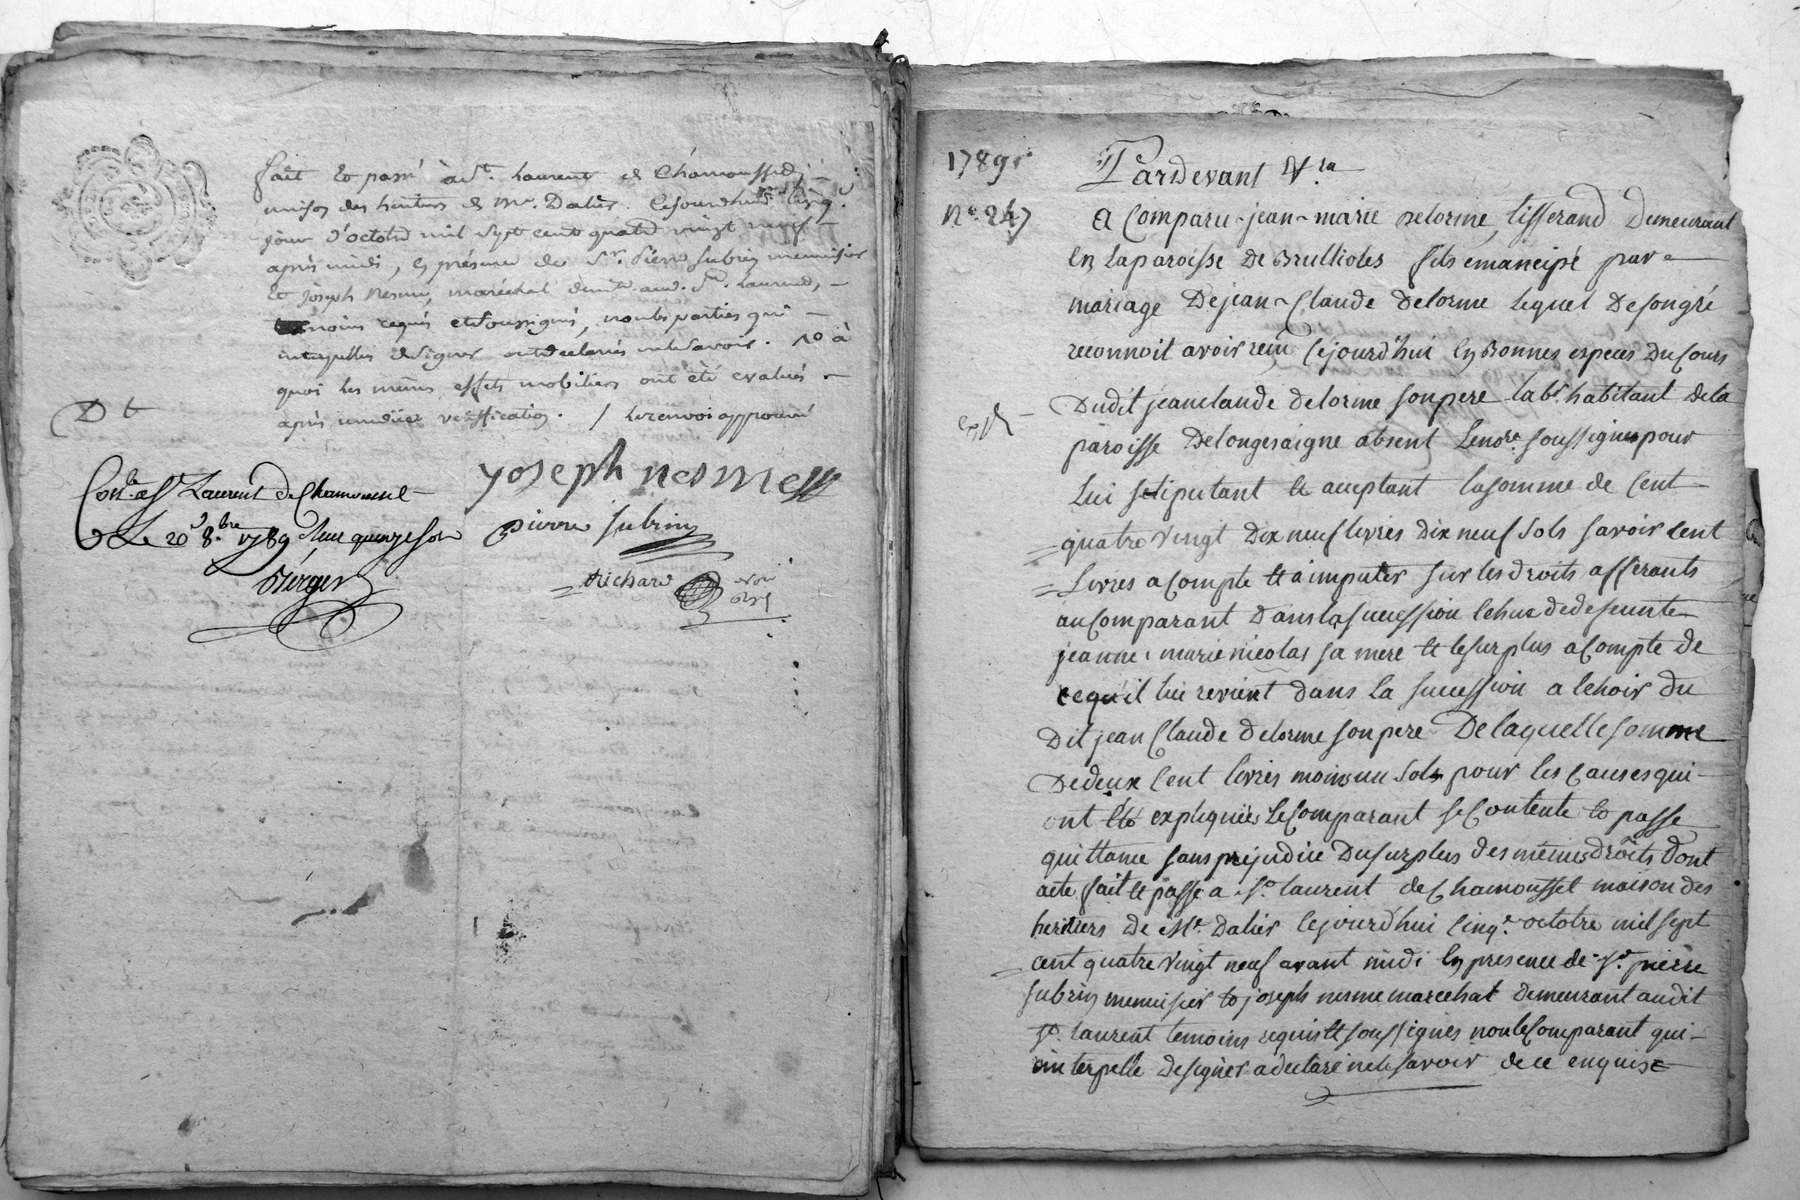 fait et passé à St. Laurent de Chamousset,
maison des heritiers de Mr. Dalier. Cejourdhui cinq.
jour d'octobre mil sept cent quatre vingt neuf
après midi, en présence de Sr. Pierre Subrin menuisier
et joseph Nesme, maréchal demt. aud. St. Laurend,
temoins requis et soussignés, non les parties qui
interpellés de signer ont declarés ne le savoir.
quoi les mêmes effets mobiliers ont été evalués
après verification. / Le renvoi approuvé
Dt
yoseph nesme
pierre subrin
Richard
Conlé. à St Laurent de Chamousset
Le 20 8.bre 1789 Reçu quinze sols
Berger
1789
No. 247
Pardevant &.ra
a Comparu jean-marie delorme, tisserand Demeurant
en laparoisse de Brullioles fils emancipé par
mariage Dejean-Claude delorme lequel De son gré
reconnoit avoir reçu Cejourd'hui en Bonnes especes Ducours
Dudit jeanclaude delorme son pere labr. habitant dela
paroisse Delongesaigne absent Lenore. soussigné pour
Lui stipulant et acceptant lasomme de Cent
quatre vingt dix neuf livres dix neuf sols savoir cent
Livres acompte et a imputer sur les droits afferants
au Comparant dans la succession echue dedefeunte
jeanne marie nicolas sa mere et lesurplus acompte de
cequ'il lui revient dans la succession a echoir du
dit jean Claude delorme son pere De laquelle somme
Dedeux Cent livres moins un sols pour les causes qui
ont été expliquées le Comparant se Contente et passe
quittance sans prejudice Dusurplus des mêmes droits dont
acte fait et passé a St. laurent de Chamousset maison des
heritiers de Mr. Dalier Cejourd'hui Cinq. octobre mil sept
cent quatre vingt neuf avant midi en presence de Sr. pierre
Subrin menuisier et joseph nesme marechal demeurant audit
St. laurent temoins requis et soussignés non le Comparant qui
interpellé de signer a declaré ne le savoir de ce enquis